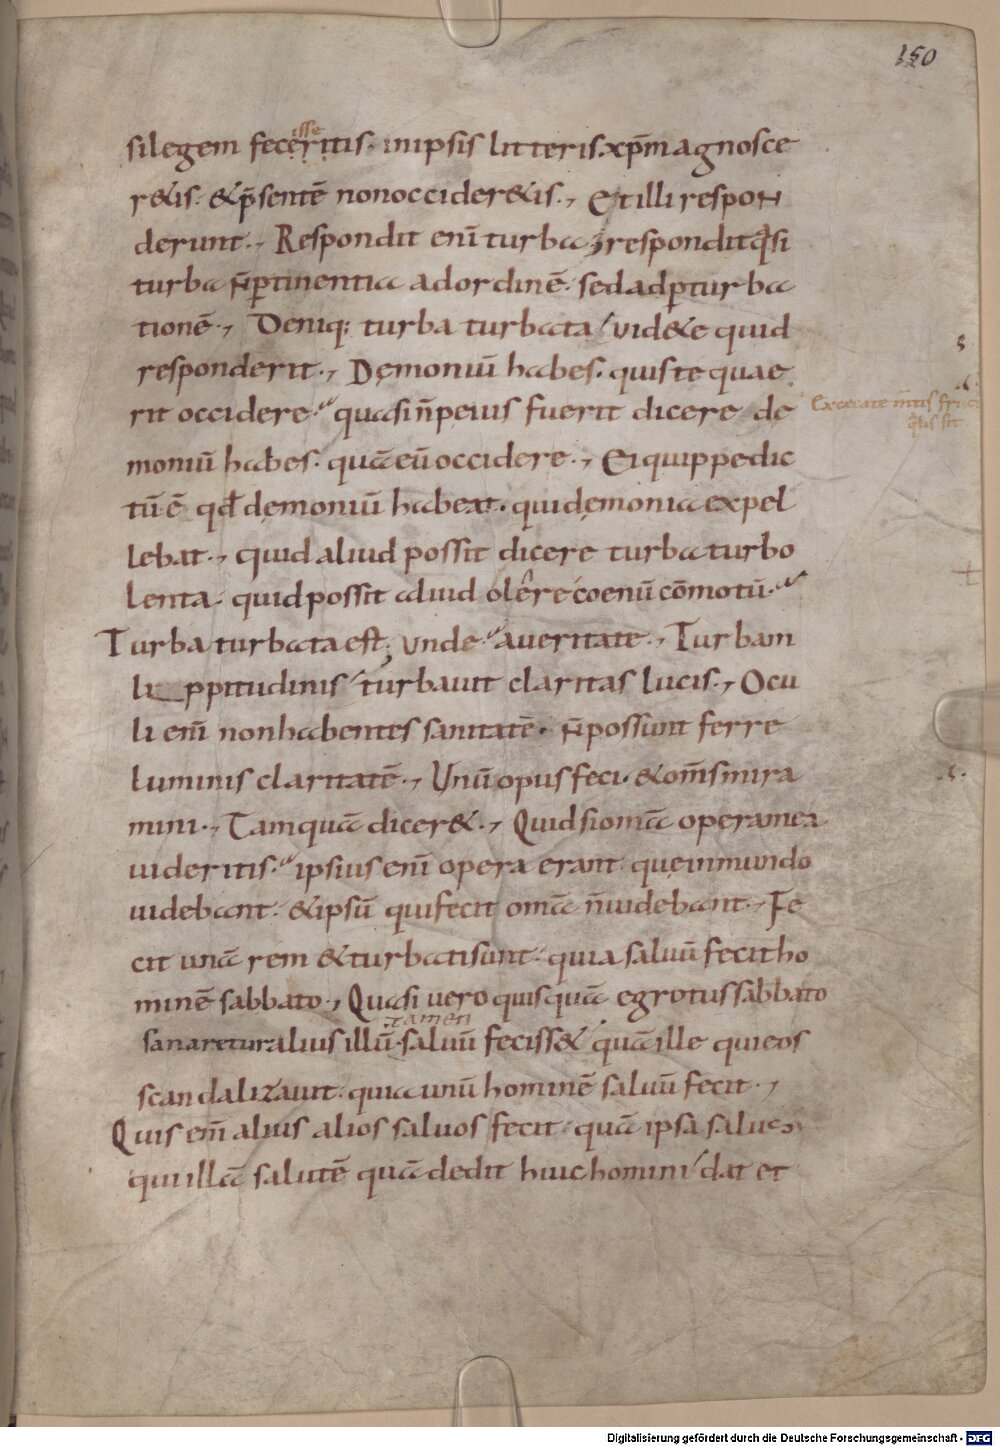 150
silegem feceritis· inipsis litteris· xp̄m agnosce
isse
r&is· & p̄sentē nonoccider&is·, Et illi respon
derunt·, Respondit enī turba; respondit q̄si
turba n̄ ptinentia adordinē· sed adpturba
tionē·, Deniq; turba turbata / uid&e quid
responderit·, Dęmoniū habes· quis te quae
rit occidere· quasi n̄ peius fuerit dicere de
Excecate mentis
q̄lis sit
moniū habes· quā eū occidere·, Ei quippe dic
tū ē qđ dęmoniū habeat· qui dęmonia expel
lebat·, quid aliud possit dicere turba turbo
lenta· quid possit aliud olêre coenū cōmotū·
Turba turbata est; unde a ueritate·, Turbam
lippitudinis turbauit claritas lucis·, Ocu
li enī non habentes sanitatē· n̄ possunt ferre
luminis claritatē·, Unū opus feci· & oms mira
mini·, Tamquā dicer&·, Quid si omīa opera mea
uideritis· ipsius enī opera erant quę in mundo
uidebant· & ipsū qui fecit omīa n̄ uidebant·, Fe
cit unā rem & turbati sunt· quia saluū fecit ho
minē sabbato·, Quasi uero quisquā egrotus sabbato
tamen
sanaretur alius illū saluū feciss& quā ille qui eos
scandalizauit· quia unū hominē saluū fecit·,
Quis enī alius alios saluos fecit· quā ipsa salus
qui illā salutē quā dedit huic homini dat et
Digitalisierung gefördert durch die Deutsche Forschungsgemeinschaft - DFG